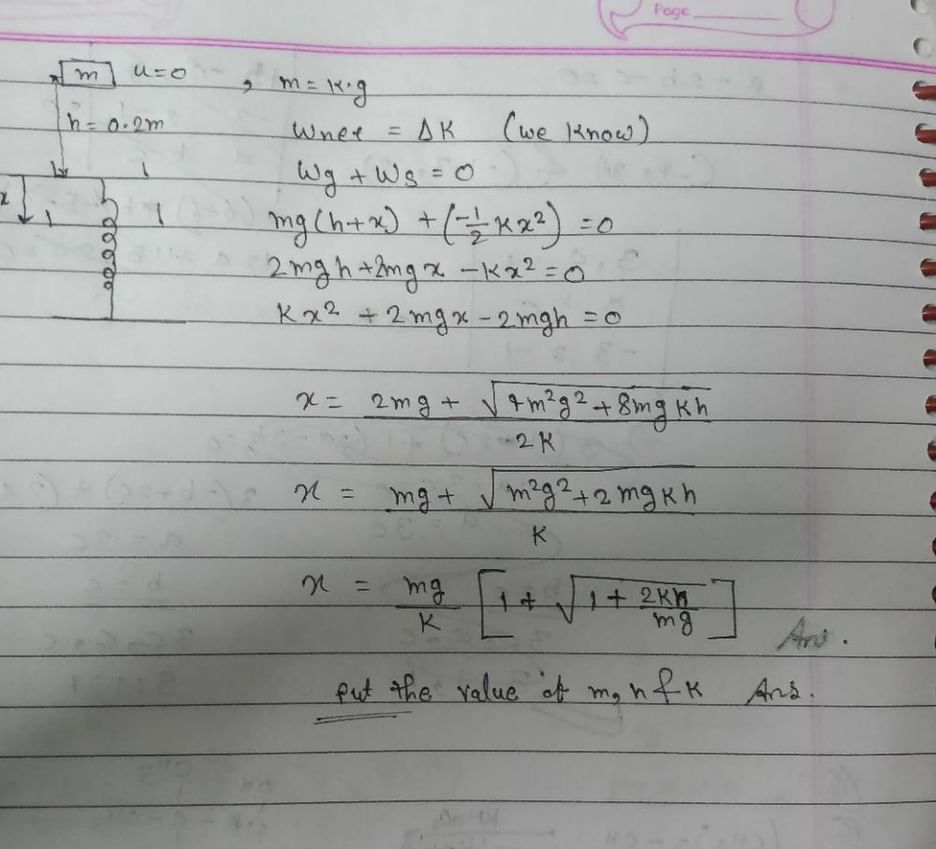 Page
m u=0 , m = k.g
h = 0.2m Wnet = ΔK (we know)
Wg + Ws = 0
x mg(h+x) + (-1/2 Kx²) = 0
2mgh + 2mgx - Kx² = 0
Kx² + 2mgx - 2mgh = 0
x = 2mg + √4m²g² + 8mgKh / 2K
x = mg + √m²g² + 2mgKh / K
x = mg/K [1 + √1 + 2Kh/mg] Ans.
put the value of m, h & K Ans.